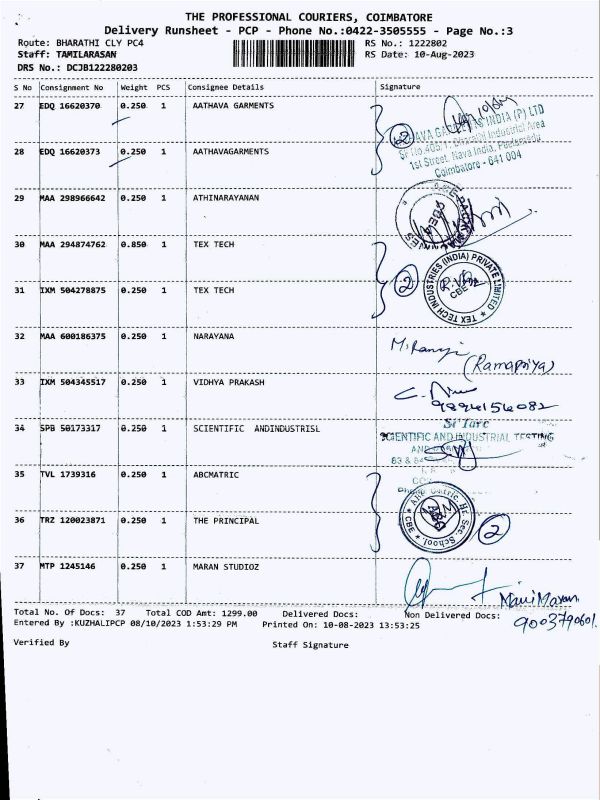 THE PROFESSIONAL COURIERS, COIMBATORE
Delivery Runsheet - PCP - Phone No.:0422-3505555 - Page No.:3
Route: BHARATHI CLY PC4 RS No.: 1222802
Staff: TAMILARASAN RS Date: 10-Aug-2023
DRS No.: DCJB122280203
S No Consignment No Weight PCS Consignee Details Signature
27 EDQ 16620370 0.250 1 AATHAVA GARMENTS
INDIA (P) LTD
Industrial Area
28 EDQ 16620373 0.250 1 AATHAVAGARMENTS
1st Street, Nava India,
Coimbatore - 641 004
29 MAA 298966642 0.250 1 ATHINARAYANAN
30 MAA 294874762 0.850 1 TEX TECH
2
TEX TECH INDUSTRIES (INDIA) PRIVATE LIMITED
CBE
31 IXM 504278875 0.250 1 TEX TECH
32 MAA 600186375 0.250 1 NARAYANA
(Ramapriya)
33 IXM 504345517 0.250 1 VIDHYA PRAKASH
9894156082
Si'Tarc
34 SPB 50173317 0.250 1 SCIENTIFIC ANDINDUSTRISL
SCIENTIFIC AND INDUSTRIAL TESTING
35 TVL 1739316 0.250 1 ABCMATRIC
36 TRZ 120023871 0.250 1 THE PRINCIPAL
Hr. Sec. School.
CBE
2
37 MTP 1245146 0.250 1 MARAN STUDIOZ
Mani Maran
9003790601.
Total No. Of Docs: 37 Total COD Amt: 1299.00 Delivered Docs: Non Delivered Docs:
Entered By :KUZHALIPCP 08/10/2023 1:53:29 PM Printed On: 10-08-2023 13:53:25
Verified By Staff Signature